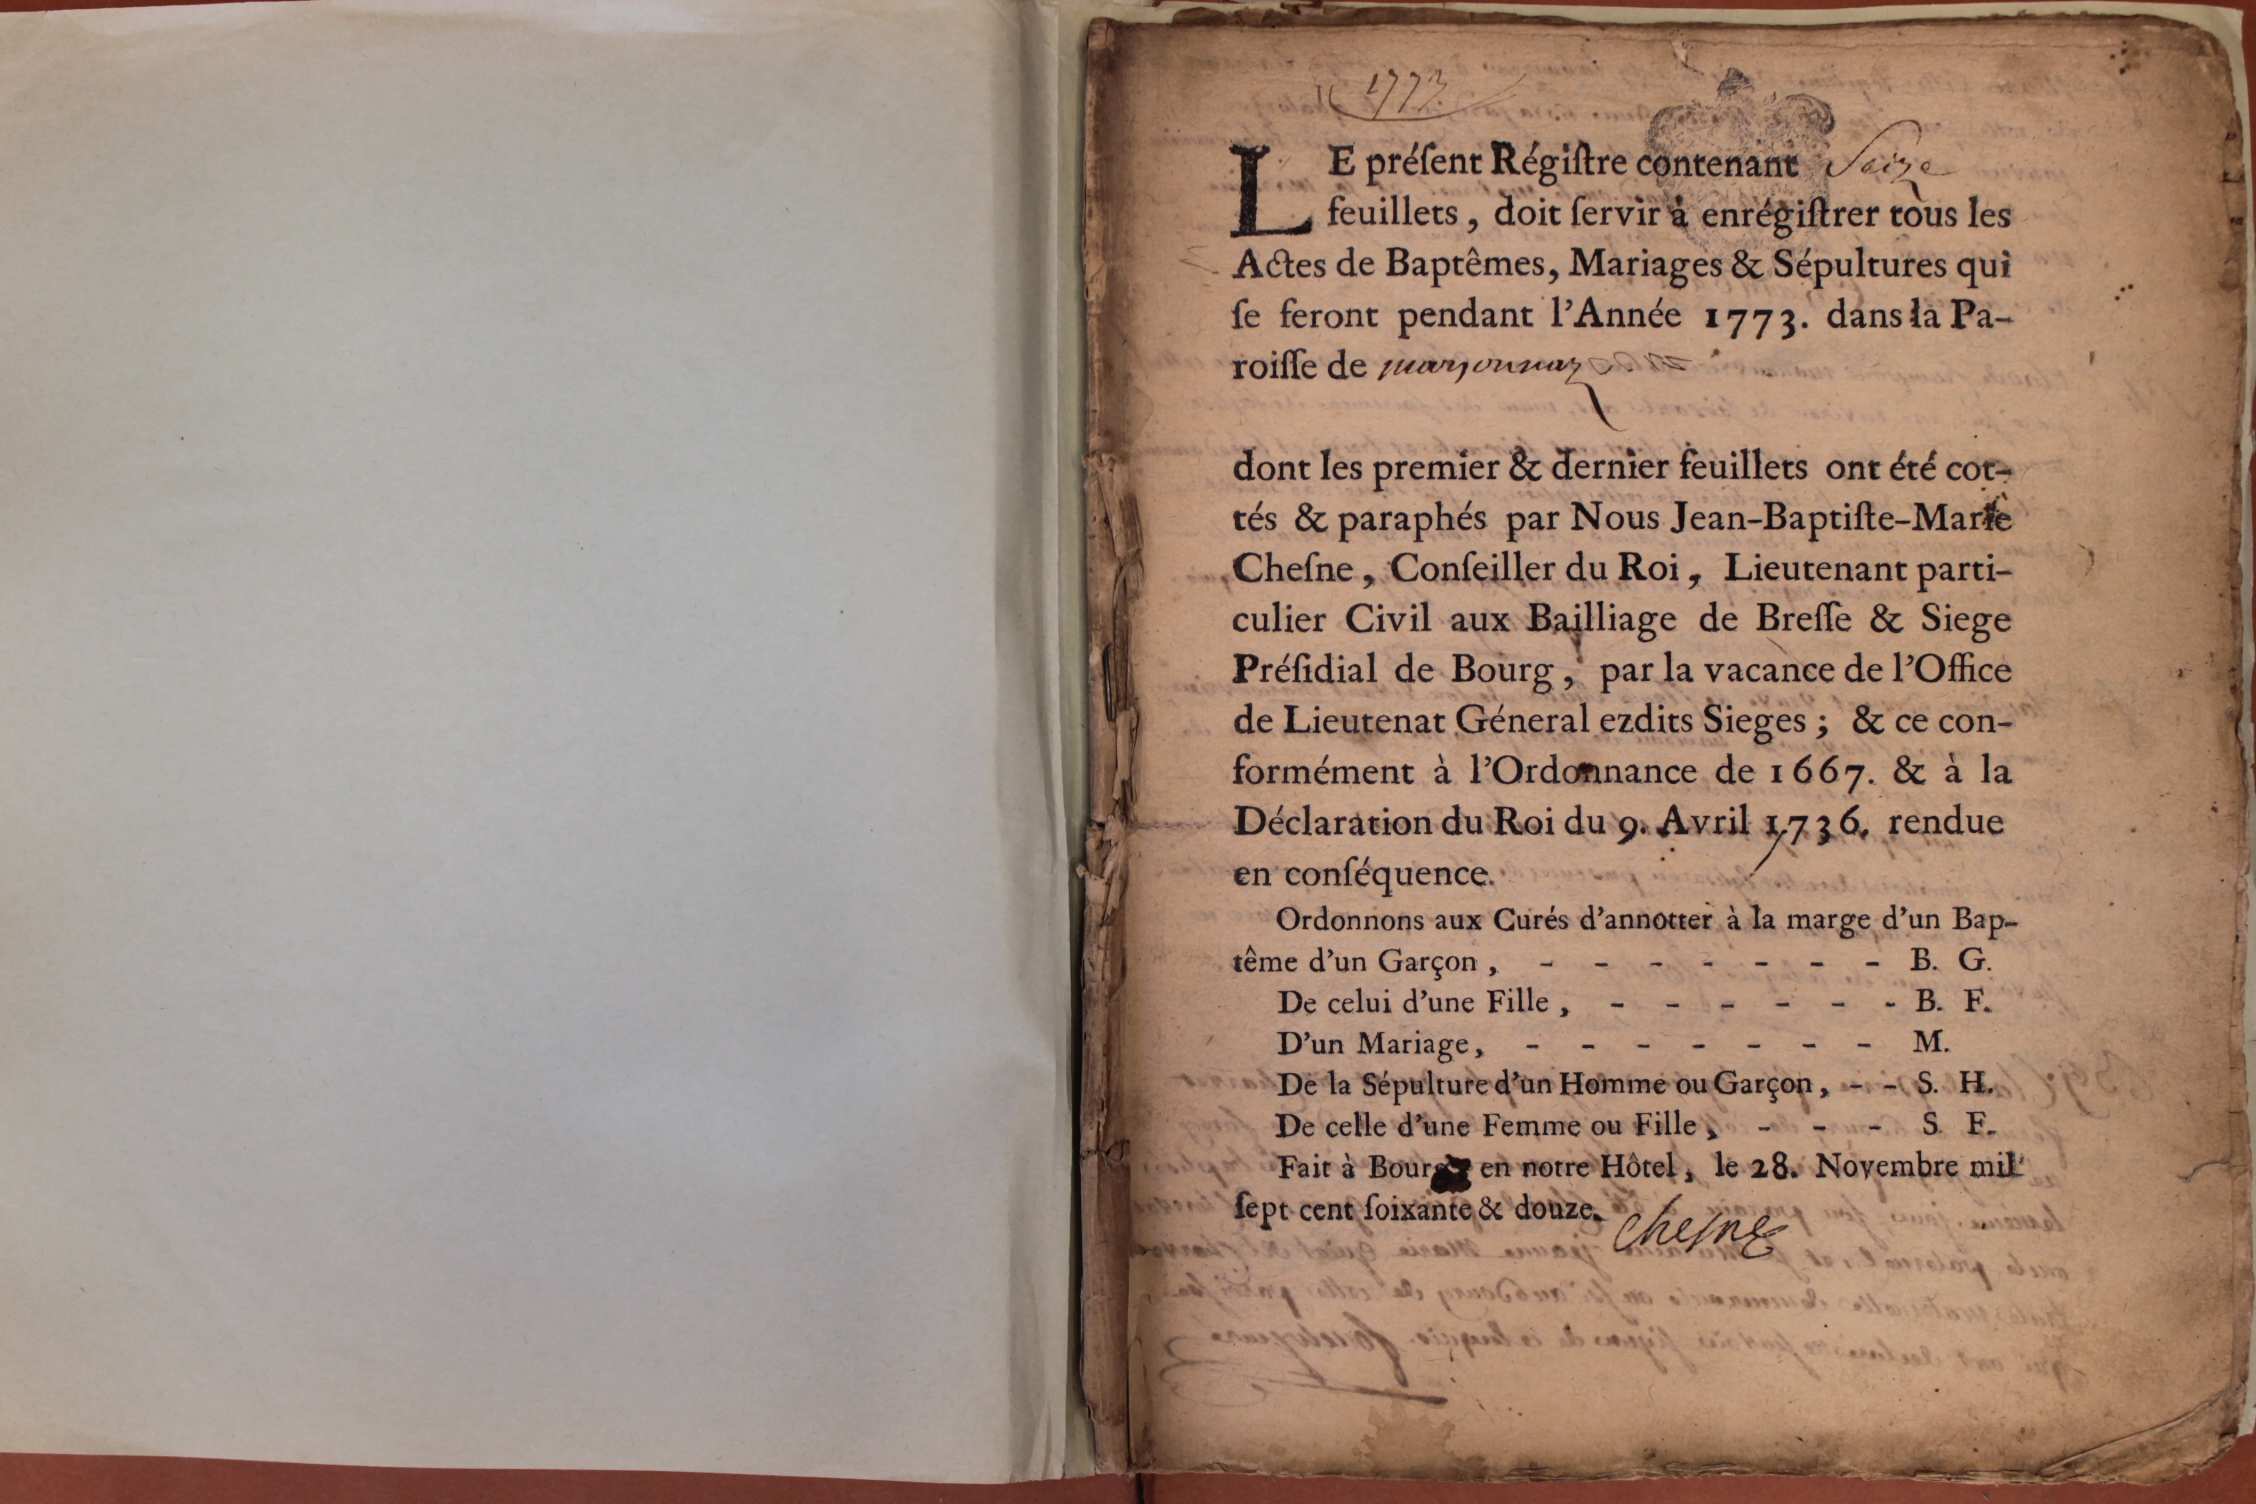 1773.
LE préſent Régiſtre contenant Seize
feuillets, doit ſervir à enrégiſtrer tous les
Actes de Baptêmes, Mariages & Sépultures qui
ſe feront pendant l'Année 1773. dans la Pa-
roiſſe de marsonnaz
dont les premier & dernier feuillets ont été cot-
tés & paraphés par Nous Jean-Baptiſte-Marie
Cheſne, Conſeiller du Roi, Lieutenant parti-
culier Civil aux Bailliage de Breſſe & Siege
Préſidial de Bourg, par la vacance de l'Office
de Lieutenat Géneral ezdits Sieges; & ce con-
formément à l'Ordonnance de 1667. & à la
Déclaration du Roi du 9. Avril 1736. rendue
en conſéquence.
Ordonnons aux Curés d'annotter à la marge d'un Bap-
tême d'un Garçon, - - - - - - - B. G.
De celui d'une Fille, - - - - - - B. F.
D'un Mariage, - - - - - - - M.
De la Sépulture d'un Homme ou Garçon, - - S. H.
De celle d'une Femme ou Fille, - - - S. F.
Fait à Bourg en notre Hôtel, le 28. Novembre mil
ſept cent ſoixante & douze. Cheſne